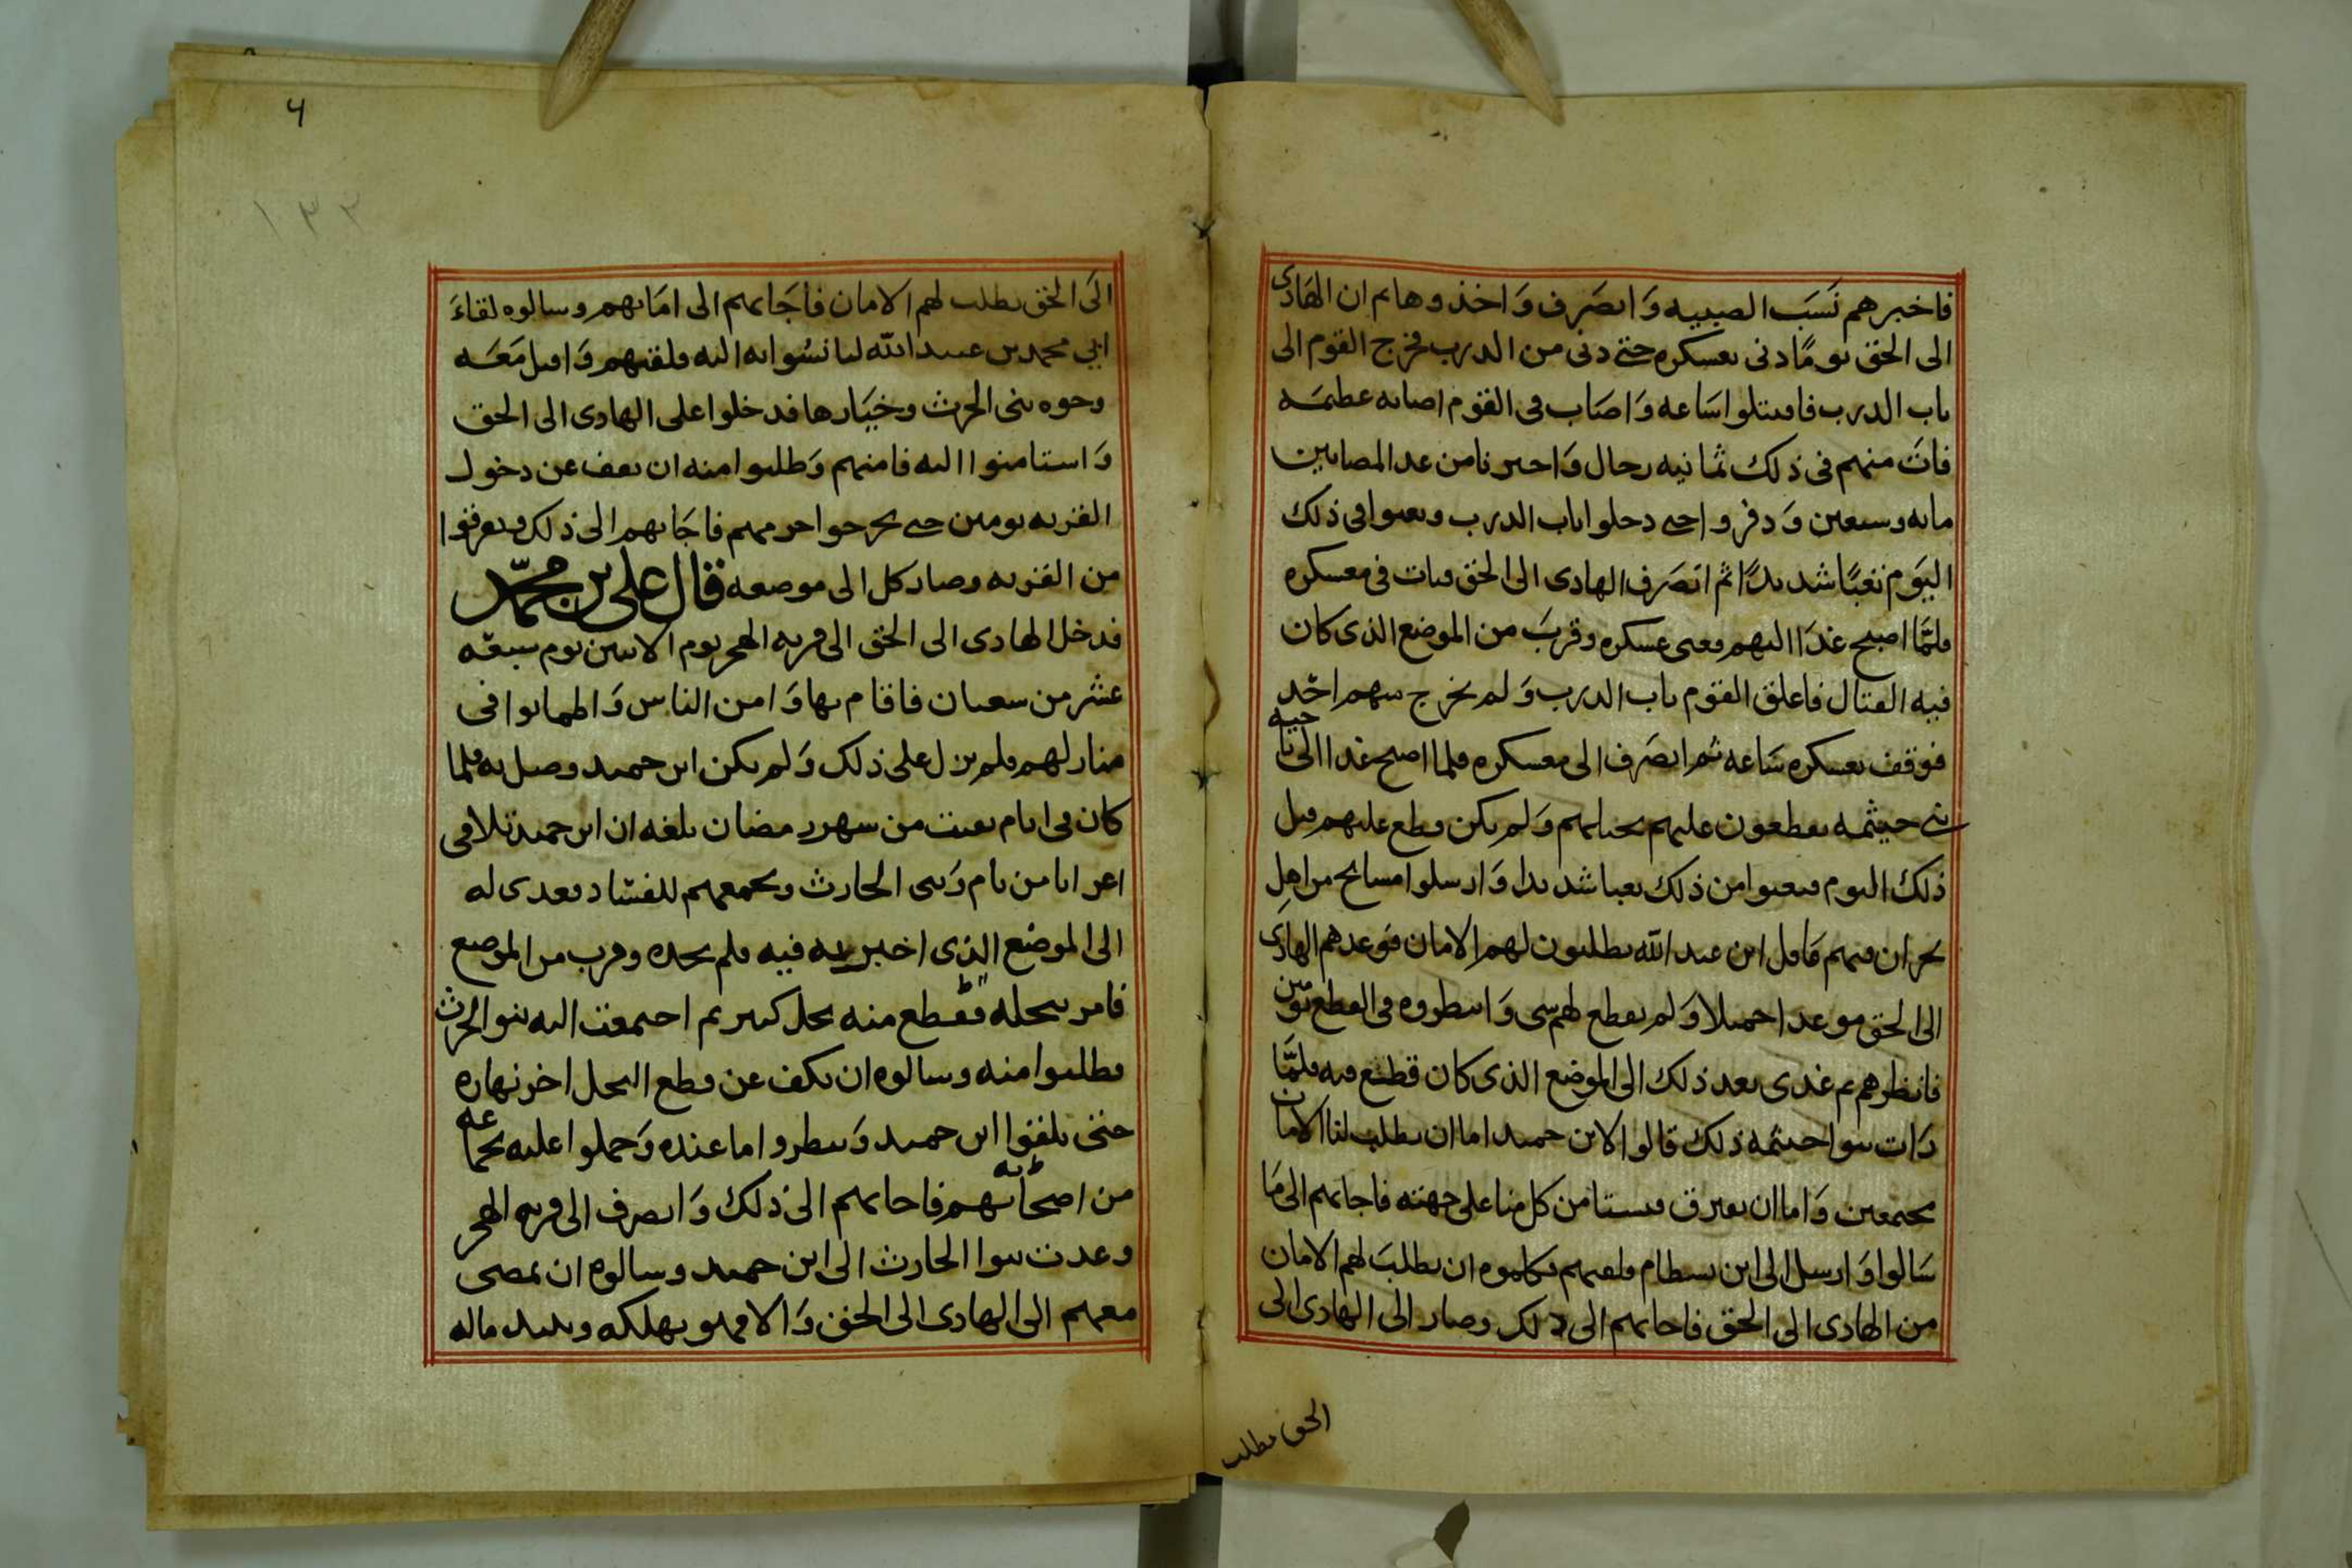 فاخبرهم نسب الصبيه وانصرف واخذوهابم ان الهادى
الى الحق يوما دنى بعسكره حتى دنى من الدرب فخرج القوم الى
باب الدرب فاقتتلوا ساعه واصاب فى القوم اصابه عظيمه
فمات منهم فى ذلك ثمانيه رجال واخبرنا من عد المصابين
مايه وسبعين ودفروا حتى دخلوا باب الدرب وتعبوا فى ذلك
اليوم تعبا شديدا ثم انصرف الهادى الى الحق فبات فى معسكره
فلما اصبح غدا اليهم فعبى عسكره وقرب من الموضع الذى كان
فيه القتال فاغلق القوم باب الدرب ولم يخرج منهم احد
فوقف بعسكره ساعه ثم انصرف الى معسكره فلما اصبح غدا الى ناحيه
بنى حيثمه يقطعون عليهم نخيلهم ولم يكن قطع عليهم قبل
ذلك اليوم فتعبوا من ذلك تعبا شديدا وارسلوا مسايخ من اهل
نجران فيهم قابل ابن عبد الله يطلبون لهم الامان فوعدهم الهادى
الى الحق موعدا جميلا ولم يقطع لهم شى وانتظروه فى القطع يومين
فانظرهم ثم غدى بعد ذلك الى الموضع الذى كان قطع فيه فلما
رات بنوا حيثمه ذلك قالوا لابن حميد اما ان يطلب لنا الامان
مجتمعين واما ان يفترق فيستامن كل منا على جهته فاجابهم الى ما
سالوا وارسل الى ابن بسطام فلقيهم فكلموه ان يطلب لهم الامان
من الهادى الى الحق فاجابهم الى ذلك وصار الى الهادى الى
الحق يطلب
٦
١٣٢
الى الحق يطلب لهم الامان فاجابهم الى امانهم وسالوه لقاء
ابي محمد بن عبيد الله ليانسوا به اليه فلقيهم واقبل معه
وجوه بنى الحرث وخيارها فدخلوا على الهادى الى الحق
واستامنوا اليه فامنهم وطلبوا منه ان يعف عن دخول
القريه يومين حتى يخرجوا حرمهم فاجابهم الى ذلك وتفرقوا
من القريه وصار كل الى موضعه قال على بن محمد
فدخل الهادى الى الحق الى قريه الهجر يوم الاثنين يوم سبعه
عشر من شعبان فاقام بها وامن الناس واطمانوا فى
منازلهم فلم يزل على ذلك ولم يكن ابن حميد وصل به فلما
كان فى ايام بقيت من شهر رمضان بلغه ان ابن حميد تلافى
اعرابا من يام وبنى الحارث ويجمعهم للفساد فغدى له
الى الموضع الذى اخبر به فيه فلم يجده وقرب من الموضع
فامر بنخله فقطع منه نخل كبير ثم اجتمعت اليه بنو الحرث
فطلبوا منه وسالوه ان يكف عن قطع النخل اخر نهاره
حتى يلقوا ابن حميد وينظروا ما عنده وحملوا عليه بجماعه
من اصحابه فاجابهم الى ذلك وانصرف الى قريه الهجر
وغدت بنوا الحارث الى ابن حميد وسالوه ان يمضى
معهم الى الهادى الى الحق والا فهو يهلكه ويبيد ماله